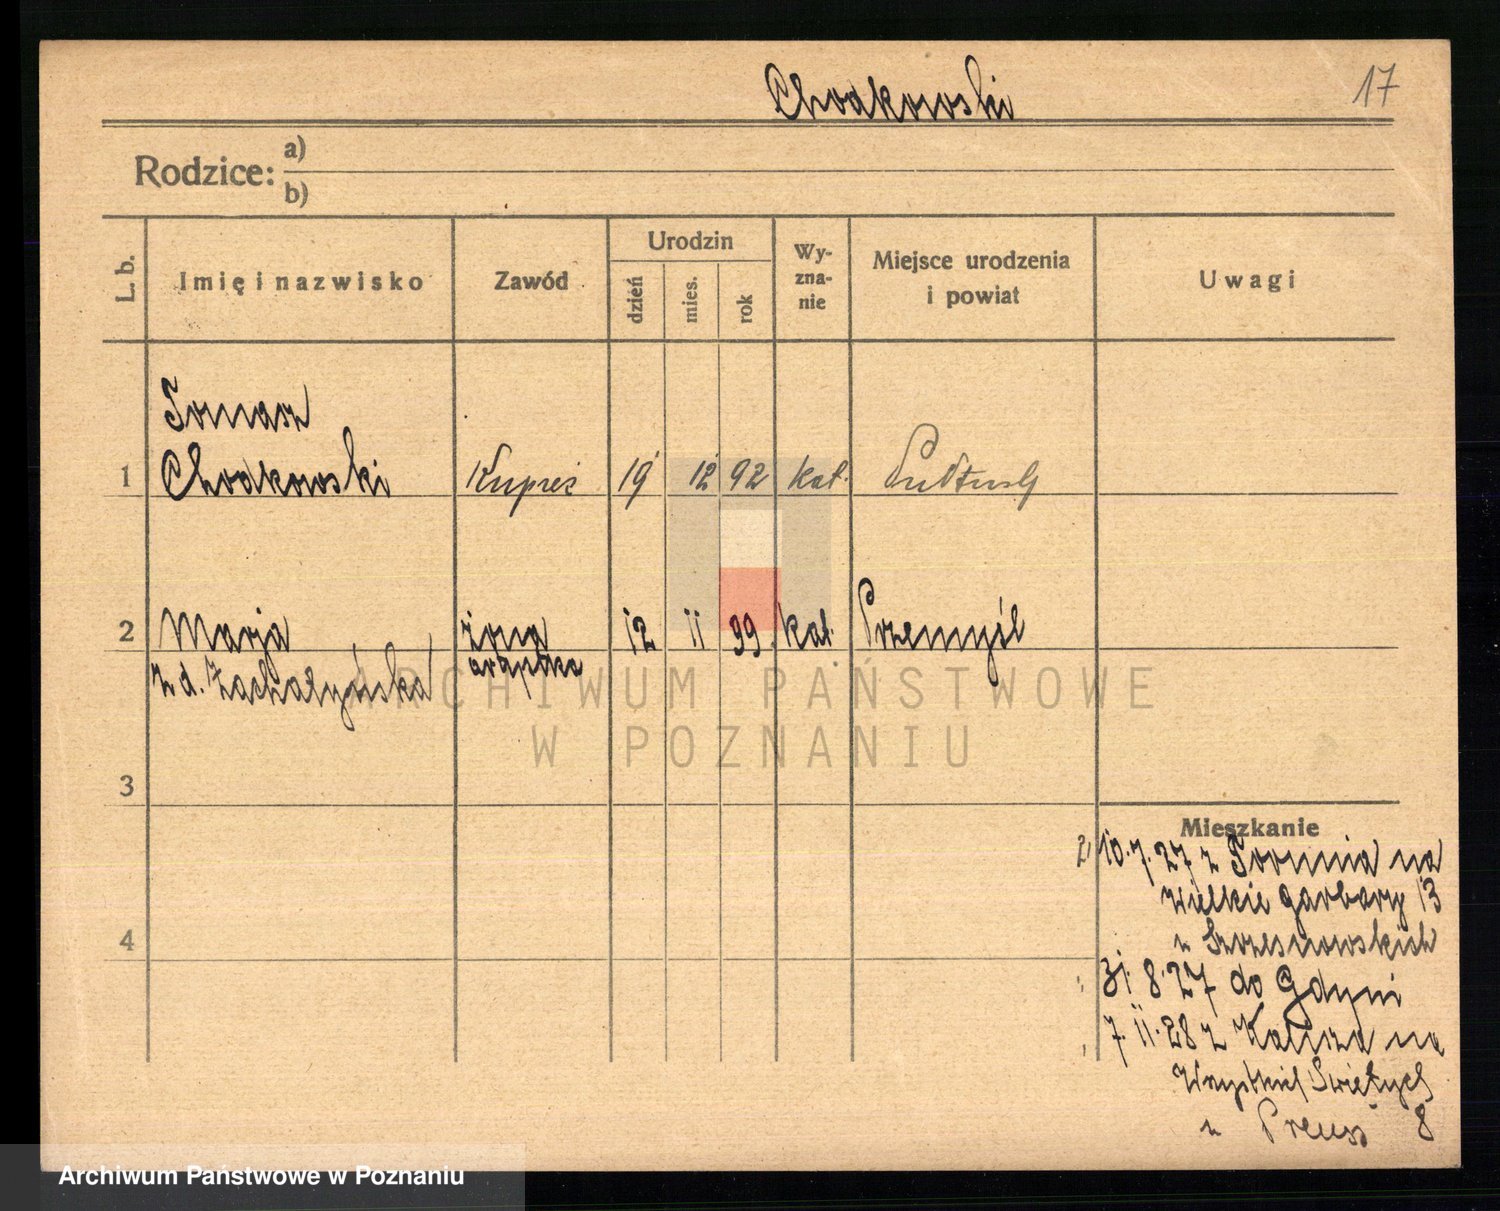 Chodkowski
17
Rodzice:
a)
b)
L. b.
Imię i nazwisko
Zawód
Urodzin
dzień
mies.
rok
Wy-
zna-
nie
Miejsce urodzenia
i powiat
Uwagi
Tomasz
1 Chodkowski Kupiec 19 12 92 kat. Pułtusk
2 Marja żona 12 11 99. kat. Przemyśl
z d.
ARCHIWUM PAŃSTWOWE
W POZNANIU
3
Mieszkanie
2, 10.7.27 z Torunia na
Wielkie Garbary 13
4
31.8.27 do Gdyni
7.11.28 z Kalisza na
Wszystkich Świętych
u Preuss 8
Archiwum Państwowe w Poznaniu